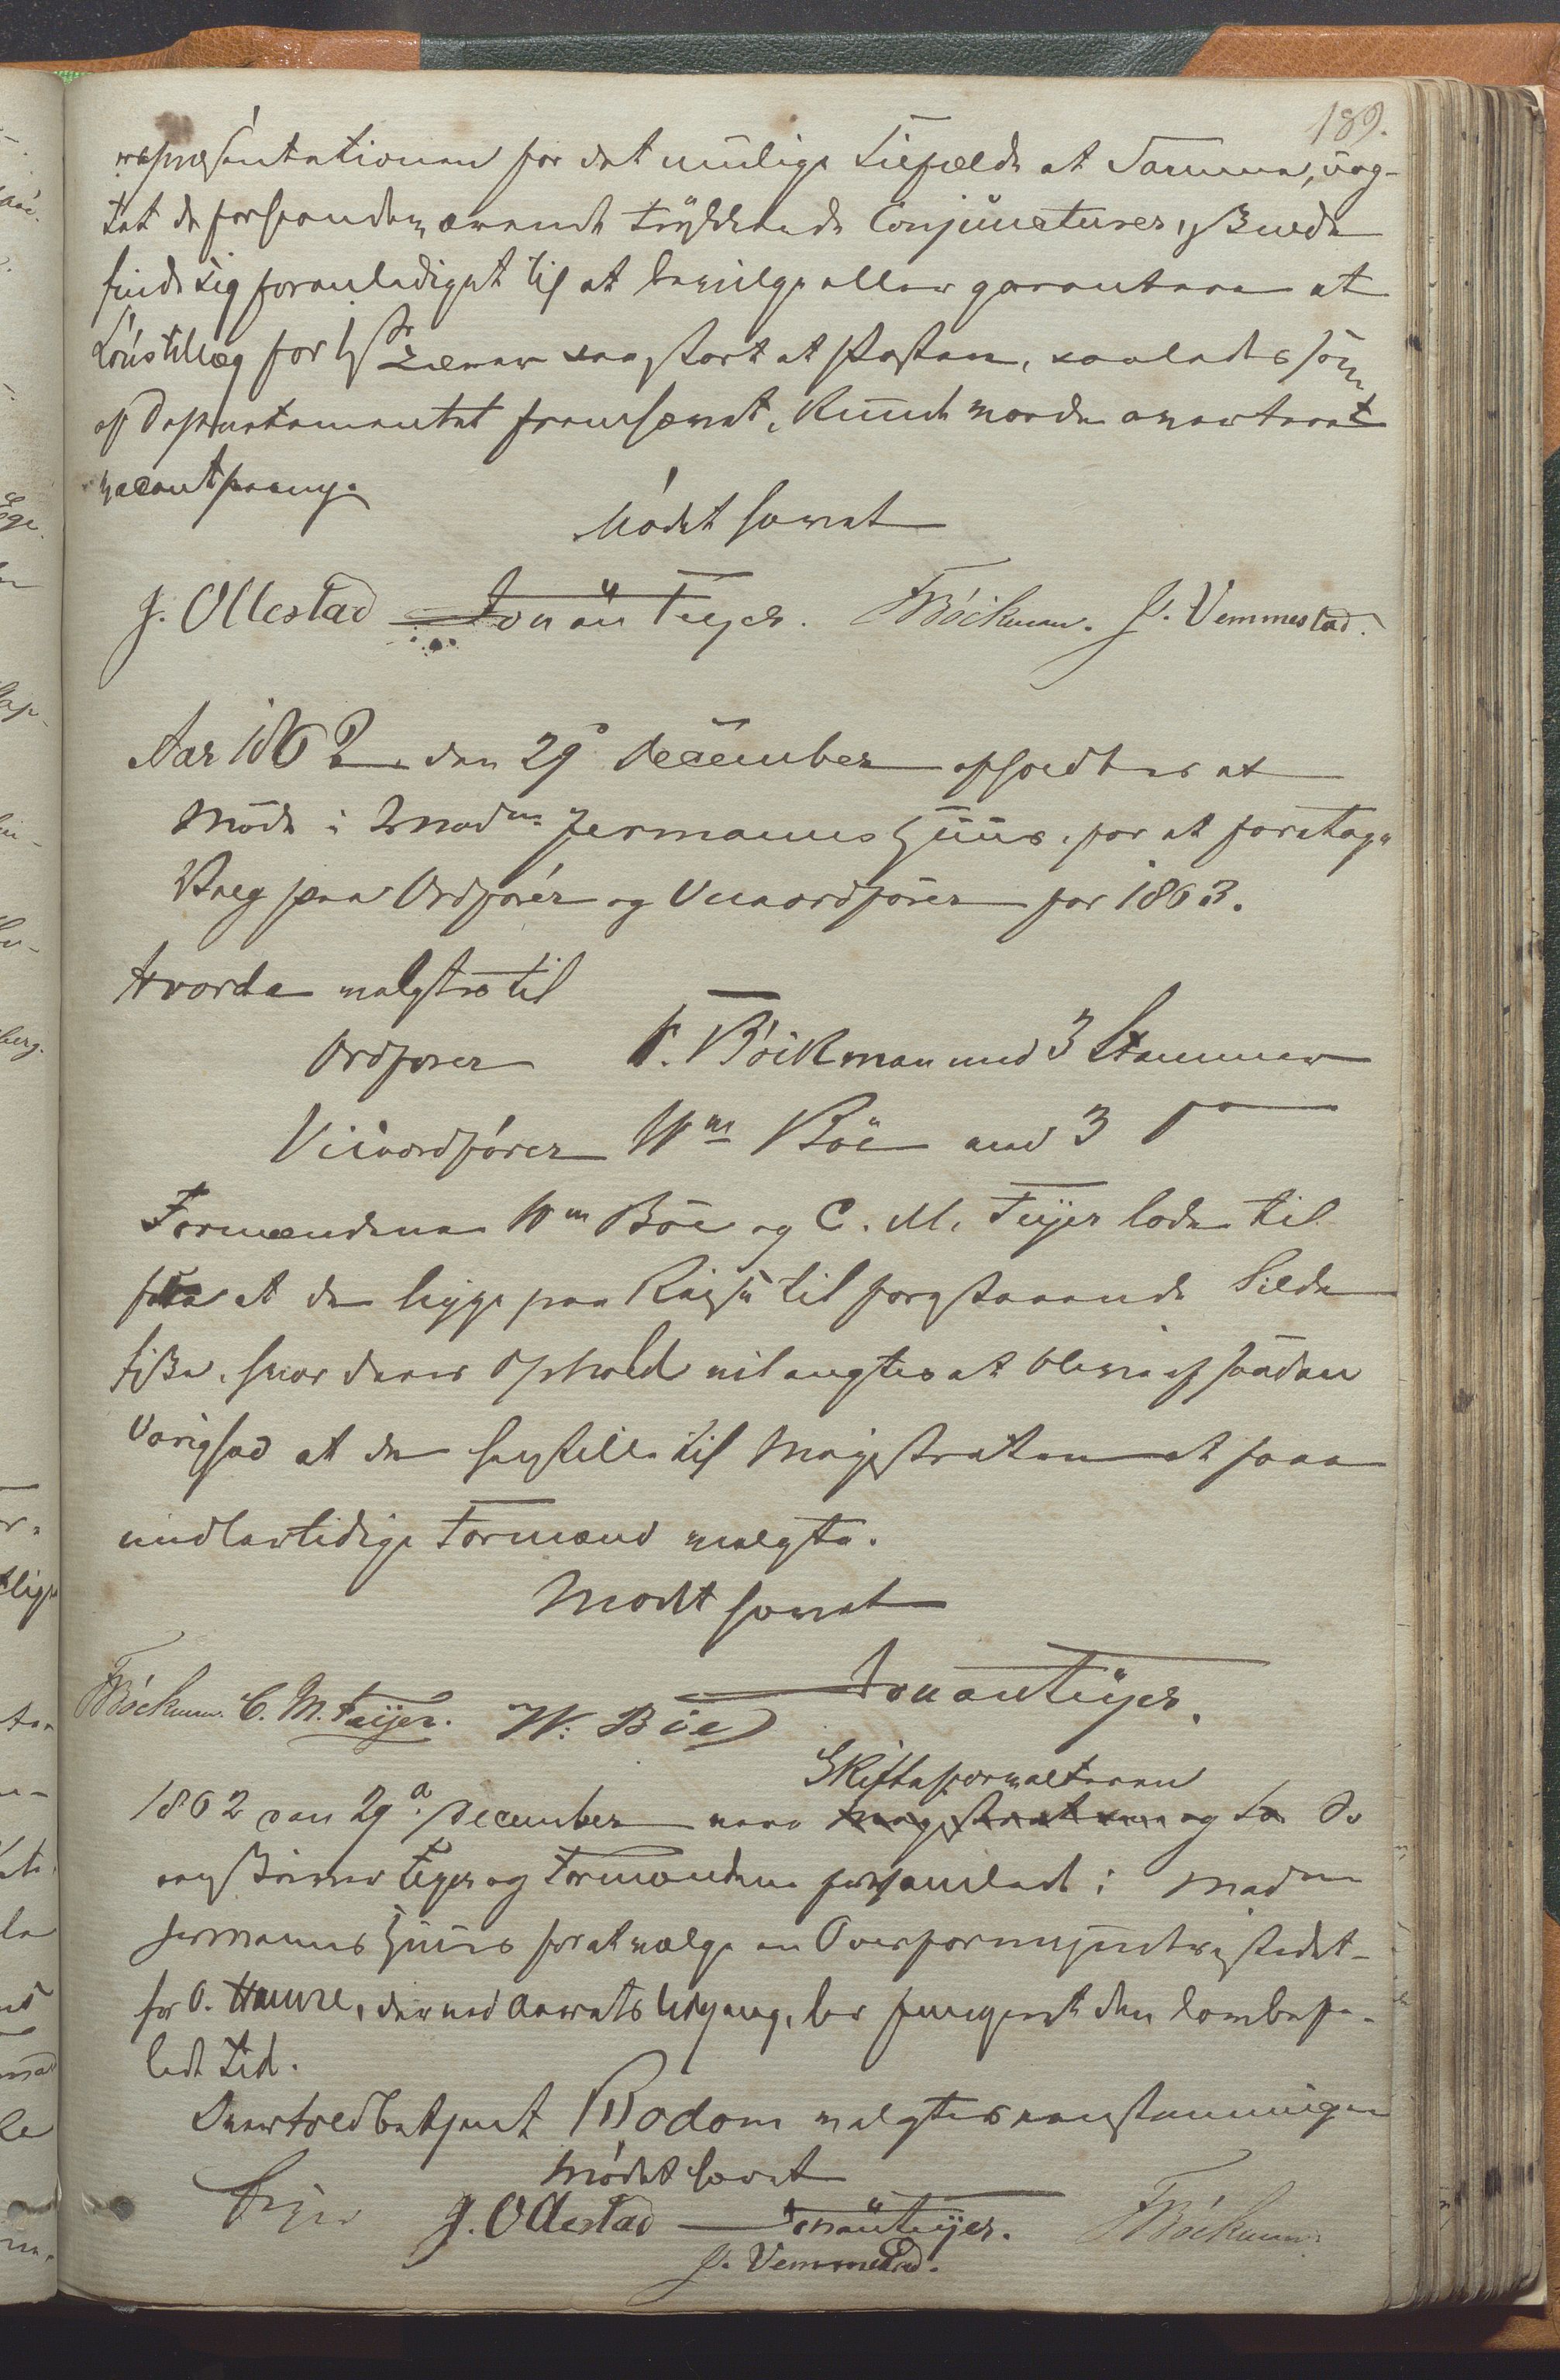 189.
repræsentationen for det mulige Tilfælde at Samme, uag-
tet de forhaanden værende trykkende Conjuncturer, skulde
finde sig foranlediget til at bevilge eller garantere et
Lönstillæg for Hr Lærer saa stort at Posten, saaledes som
af Departementet fremhævet, kunde vorde averteret
vacant paany.
Mödet hævet
J. Ollestad Jonan Feyer. F Böckman. J. Vemmestad.
Aar 1862 den 29 December afholdtes et
Möde i Madm Jermanns Huus, for at foretage
Valg paa Ordförer og Viceordförer for 1863.
Hvorda valgtes til
Ordförer F. Böckman med 3 Stemmer
Viceordförer Wm Böe med 3 "
Formændene Wm Böe og C. M. Feyer lode til
före at de ligge paa Reise til forestaaende Silde
fiske, hvor deres Ophold vil antages at blive af saadan
Varighed at de henstille til Magistraten at faae
midlertidige Formænd valgte.
Mödet hævet
F Böckman. C. M. Feyer. W. Böe Jonan Feyer.
Skifteforvalteren
1862 den 29de December vare Magistraten og
Feyer og Formændene forsamlede i Madm
Jermanns Huus for at vælge en Overformynder istedet
for O. Hauvre, der ved Aarets Udgang, har fungeret den lovbefa-
lede Tid.
Overtoldbetjent Rodom valgtes eenstemmigen
Mödet hævet
Feyer J. Ollestad Jonan Feyer. F Böckman
J. Vemmestad.